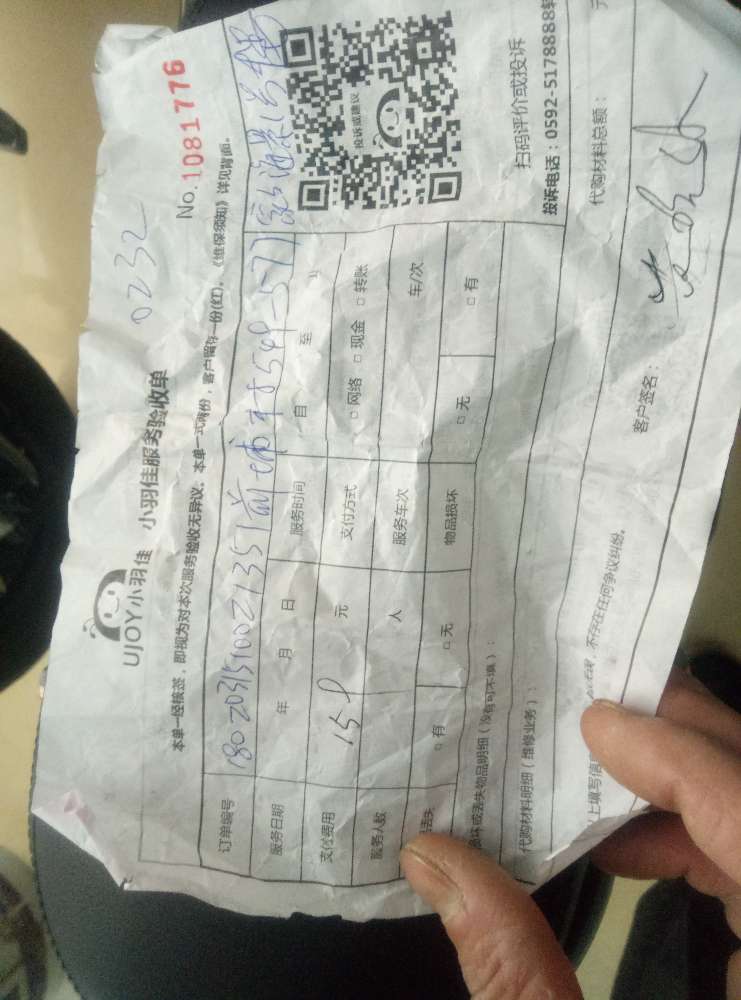 UJOY小羽佳 小羽佳服务验收单
0232
No.1081776
本单一经核签，即视为对本次服务验收无异议。本单一式两份，客户留存一份(红)，《维保须知》详见背面。
订单编号 180203151002135
服务日期 年 月 日 服务时间 自 至
支付费用 158 元 支付方式 □ 网络 □ 现金 □ 转账
服务人数 人 服务车次 车/次
丢失 □ 有 □ 无 物品损坏 □ 无 □ 有
损坏或丢失物品明细（没有可不填）：
代购材料明细（维修业务）： 代购材料总额： 元
以上填写信息 不存在任何争议纠纷。
客户签名：
投诉或建议
扫码评价或投诉
投诉电话：0592-5178888转